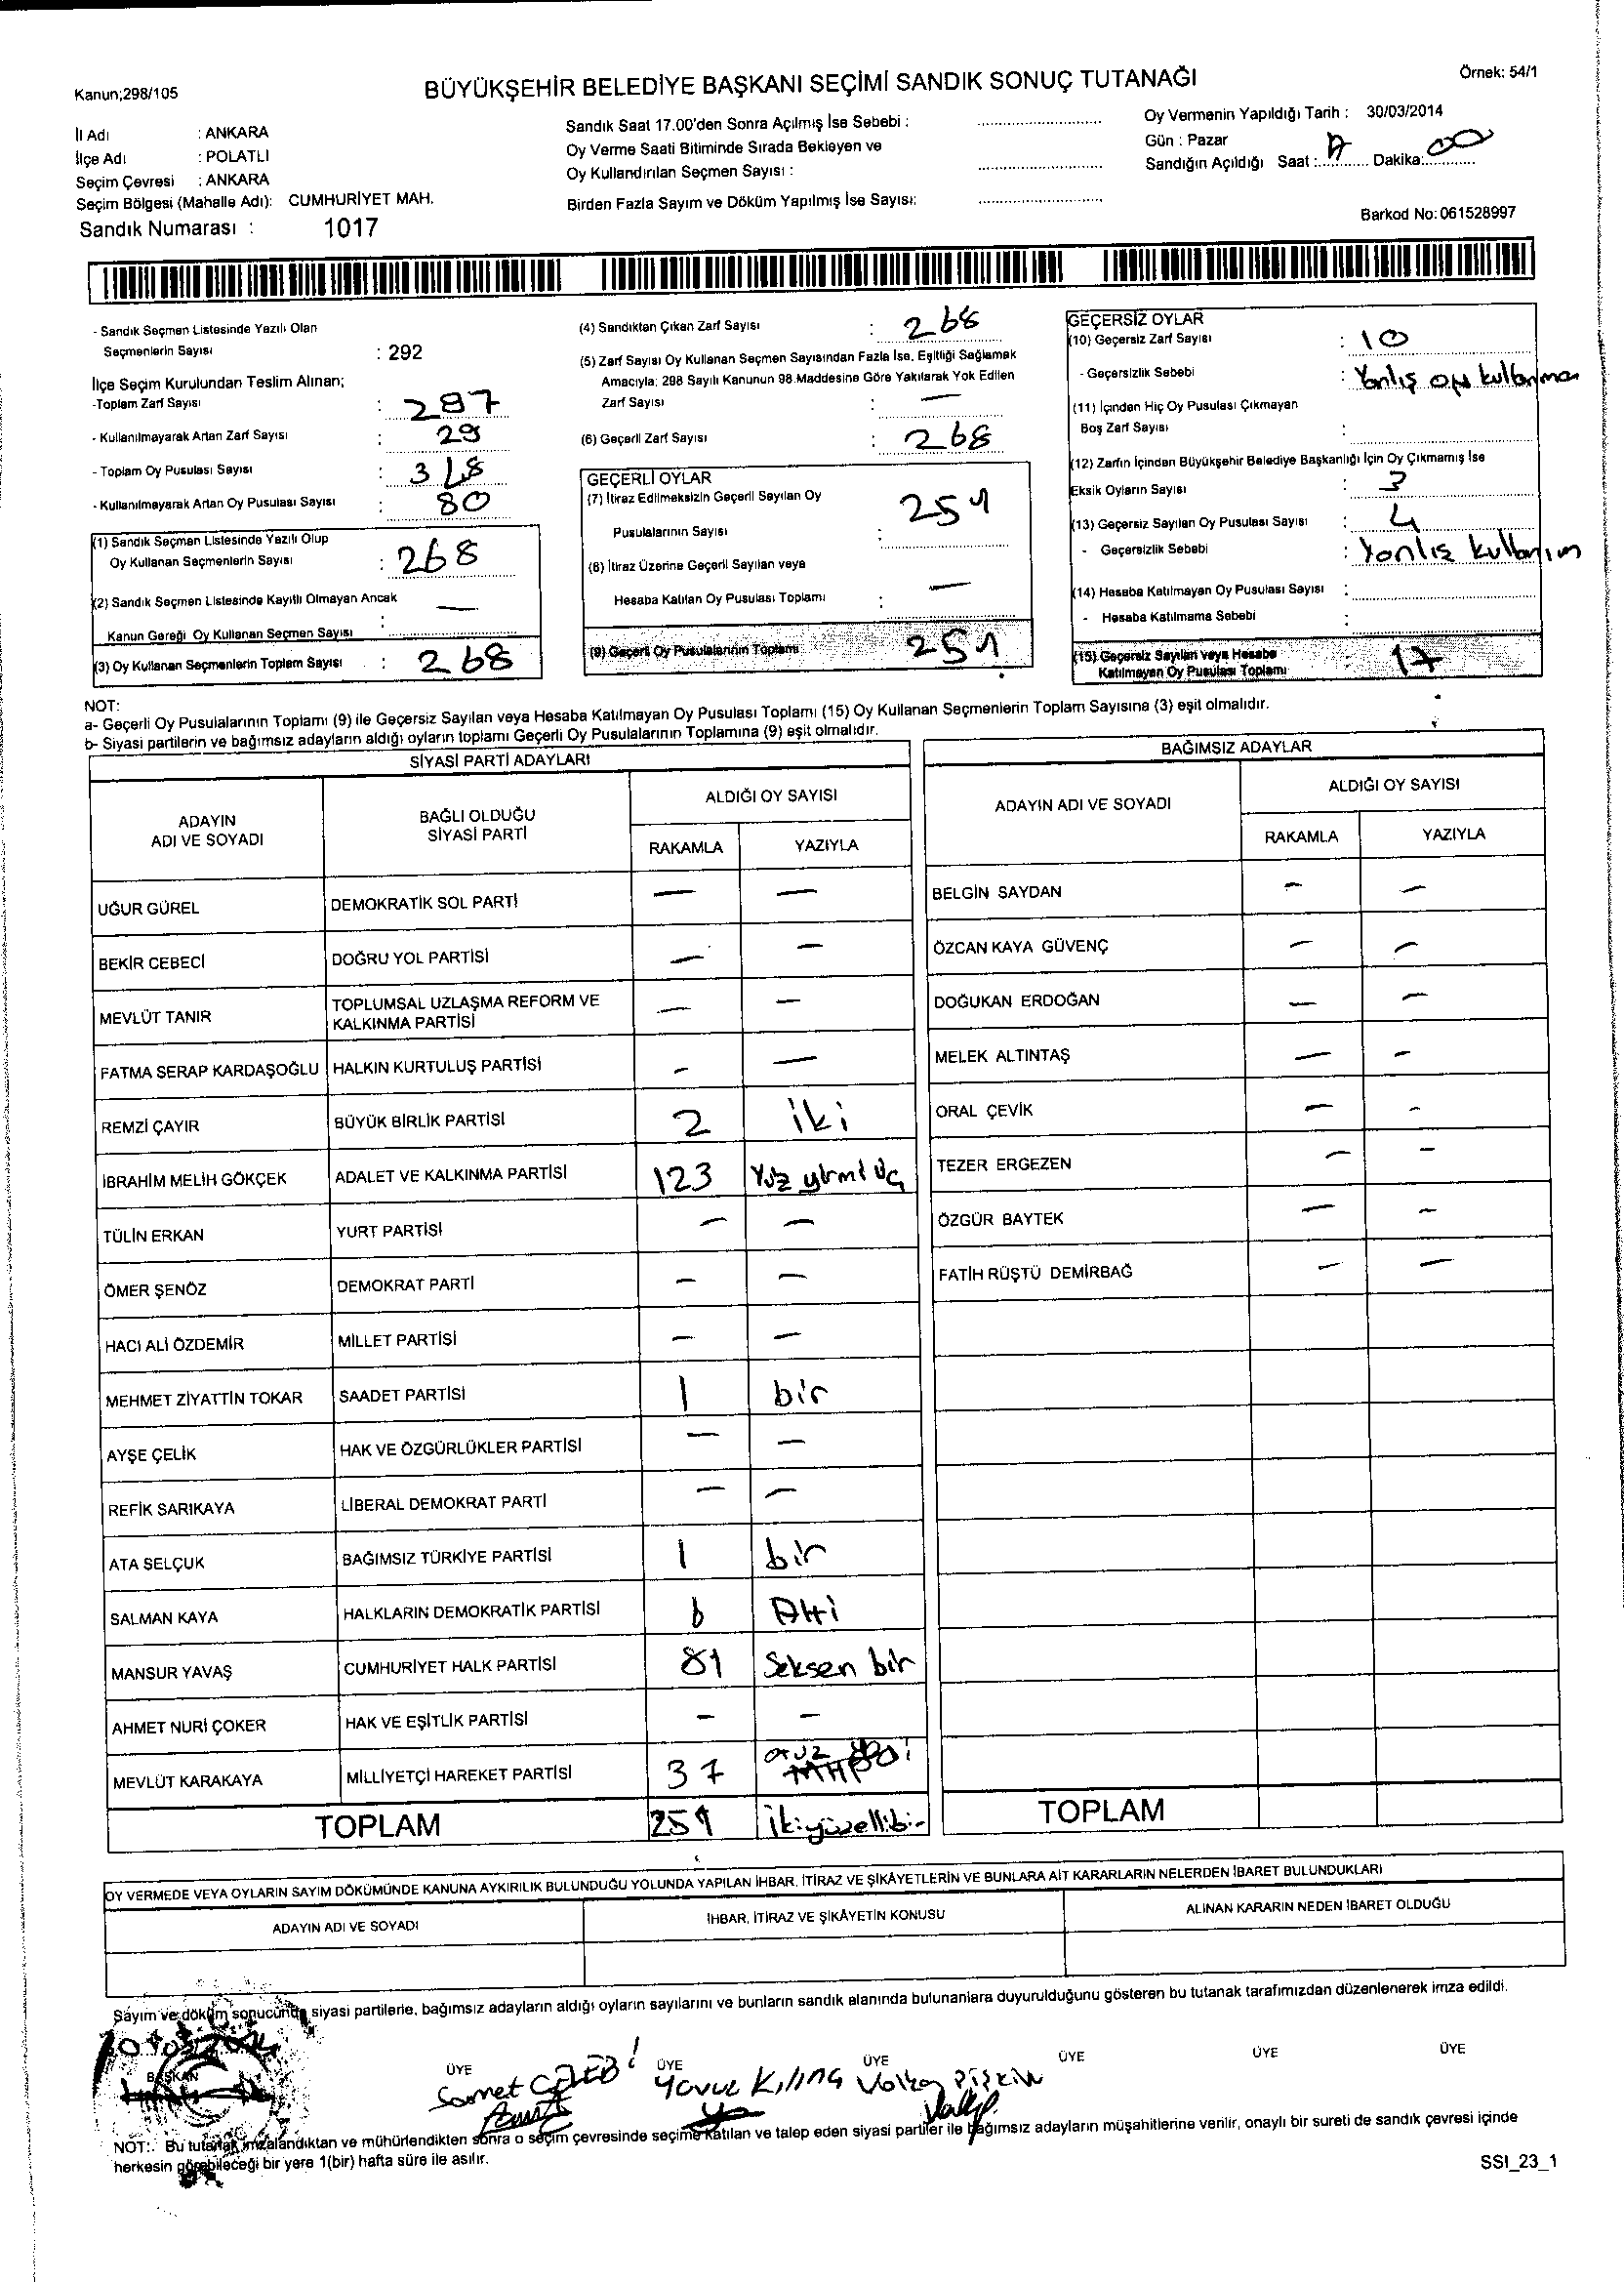 Kanun;298/105
BÜYÜKŞEHİR BELEDİYE BAŞKANI SEÇİMİ SANDIK SONUÇ TUTANAĞI
Örnek: 54/1
İl Adı : ANKARA
İlçe Adı : POLATLI
Seçim Çevresi : ANKARA
Seçim Bölgesi (Mahalle Adı): CUMHURİYET MAH.
Sandık Numarası : 1017
Sandık Saat 17.00'den Sonra Açılmış İse Sebebi :
Oy Verme Saati Bitiminde Sırada Bekleyen ve
Oy Kullandırılan Seçmen Sayısı :
Birden Fazla Sayım ve Döküm Yapılmış İse Sayısı:
Oy Vermenin Yapıldığı Tarih : 30/03/2014
Gün : Pazar
Sandığın Açıldığı Saat : Dakika: 00
Barkod No: 061528997
- Sandık Seçmen Listesinde Yazılı Olan
Seçmenlerin Sayısı : 292
İlçe Seçim Kurulundan Teslim Alınan;
-Toplam Zarf Sayısı : 297
- Kullanılmayarak Artan Zarf Sayısı : 29
- Toplam Oy Pusulası Sayısı : 318
- Kullanılmayarak Artan Oy Pusulası Sayısı : 80
(1) Sandık Seçmen Listesinde Yazılı Olup
Oy Kullanan Seçmenlerin Sayısı : 268
(2) Sandık Seçmen Listesinde Kayıtlı Olmayan Ancak
Kanun Gereği Oy Kullanan Seçmen Sayısı : —
(3) Oy Kullanan Seçmenlerin Toplam Sayısı : 268
(4) Sandıktan Çıkan Zarf Sayısı : 268
(5) Zarf Sayısı Oy Kullanan Seçmen Sayısından Fazla İse, Eşitliği Sağlamak
Amacıyla; 298 Sayılı Kanunun 98.Maddesine Göre Yakılarak Yok Edilen
Zarf Sayısı : —
(6) Geçerli Zarf Sayısı : 268
GEÇERLİ OYLAR
(7) İtiraz Edilmeksizin Geçerli Sayılan Oy
Pusulalarının Sayısı : 251
(8) İtiraz Üzerine Geçerli Sayılan veya
Hesaba Katılan Oy Pusulası Toplamı : —
(9) Geçerli Oy Pusulalarının Toplamı 251
GEÇERSİZ OYLAR
(10) Geçersiz Zarf Sayısı : 10
- Geçersizlik Sebebi : Yanlış oy kullanma
(11) İçinden Hiç Oy Pusulası Çıkmayan
Boş Zarf Sayısı :
(12) Zarfın İçinden Büyükşehir Belediye Başkanlığı İçin Oy Çıkmamış İse
Eksik Oyların Sayısı : 3
(13) Geçersiz Sayılan Oy Pusulası Sayısı : 4
- Geçersizlik Sebebi : Yanlış kullanım
(14) Hesaba Katılmayan Oy Pusulası Sayısı :
- Hesaba Katılmama Sebebi :
(15) Geçersiz Sayılan veya Hesaba
Katılmayan Oy Pusulası Toplamı : 17
NOT:
a- Geçerli Oy Pusulalarının Toplamı (9) ile Geçersiz Sayılan veya Hesaba Katılmayan Oy Pusulası Toplamı (15) Oy Kullanan Seçmenlerin Toplam Sayısına (3) eşit olmalıdır.
b- Siyasi partilerin ve bağımsız adayların aldığı oyların toplamı Geçerli Oy Pusulalarının Toplamına (9) eşit olmalıdır.
SİYASİ PARTİ ADAYLARI
ADAYIN
ADI VE SOYADI
BAĞLI OLDUĞU
SİYASİ PARTİ
ALDIĞI OY SAYISI
RAKAMLA YAZIYLA
UĞUR GÜREL DEMOKRATİK SOL PARTİ — —
BEKİR CEBECİ DOĞRU YOL PARTİSİ — —
MEVLÜT TANIR TOPLUMSAL UZLAŞMA REFORM VE
KALKINMA PARTİSİ — —
FATMA SERAP KARDAŞOĞLU HALKIN KURTULUŞ PARTİSİ — —
REMZİ ÇAYIR BÜYÜK BİRLİK PARTİSİ 2 iki
İBRAHİM MELİH GÖKÇEK ADALET VE KALKINMA PARTİSİ 123 Yüz yirmi üç
TÜLİN ERKAN YURT PARTİSİ — —
ÖMER ŞENÖZ DEMOKRAT PARTİ — —
HACI ALİ ÖZDEMİR MİLLET PARTİSİ — —
MEHMET ZİYATTİN TOKAR SAADET PARTİSİ 1 bir
AYŞE ÇELİK HAK VE ÖZGÜRLÜKLER PARTİSİ — —
REFİK SARIKAYA LİBERAL DEMOKRAT PARTİ — —
ATA SELÇUK BAĞIMSIZ TÜRKİYE PARTİSİ 1 bir
SALMAN KAYA HALKLARIN DEMOKRATİK PARTİSİ 6 Altı
MANSUR YAVAŞ CUMHURİYET HALK PARTİSİ 81 Seksen bir
AHMET NURİ ÇOKER HAK VE EŞİTLİK PARTİSİ — —
MEVLÜT KARAKAYA MİLLİYETÇİ HAREKET PARTİSİ 37 otuz
TOPLAM 251 İkiyüzellibir
BAĞIMSIZ ADAYLAR
ADAYIN ADI VE SOYADI
ALDIĞI OY SAYISI
RAKAMLA YAZIYLA
BELGİN SAYDAN — —
ÖZCAN KAYA GÜVENÇ — —
DOĞUKAN ERDOĞAN — —
MELEK ALTINTAŞ — —
ORAL ÇEVİK — —
TEZER ERGEZEN — —
ÖZGÜR BAYTEK — —
FATİH RÜŞTÜ DEMİRBAĞ — —
TOPLAM
OY VERMEDE VEYA OYLARIN SAYIM DÖKÜMÜNDE KANUNA AYKIRILIK BULUNDUĞU YOLUNDA YAPILAN İHBAR, İTİRAZ VE ŞİKÂYETLERİN VE BUNLARA AİT KARARLARIN NELERDEN İBARET BULUNDUKLARI
ADAYIN ADI VE SOYADI
İHBAR, İTİRAZ VE ŞİKÂYETİN KONUSU
ALINAN KARARIN NEDEN İBARET OLDUĞU
Sayım ve döküm sonucunda siyasi partilerle, bağımsız adayların aldığı oyların sayılarını ve bunların sandık alanında bulunanlara duyurulduğunu gösteren bu tutanak tarafımızdan düzenlenerek imza edildi.
BAŞKAN
ÜYE ÜYE ÜYE ÜYE ÜYE ÜYE
Samet Yavuz Kılınç Volkan Pişkin
NOT:. Bu tutanak imzalandıktan ve mühürlendikten sonra o seçim çevresinde seçime katılan ve talep eden siyasi partiler ile bağımsız adayların müşahitlerine verilir, onaylı bir sureti de sandık çevresi içinde
herkesin görebileceği bir yere 1(bir) hafta süre ile asılır.
SSI_23_1